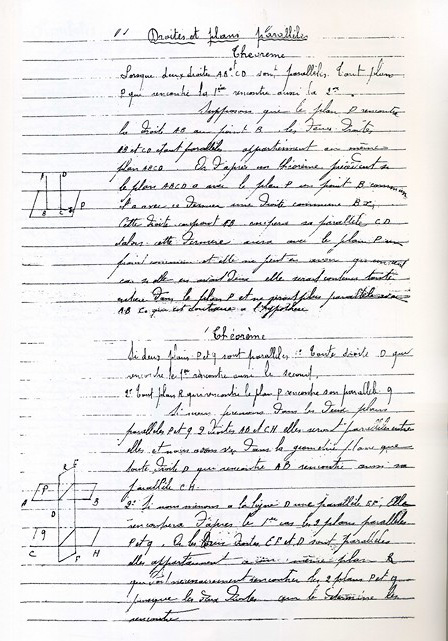 Droites et plans parallèles
Theoreme
Lorsque deux droites AB et CD sont parallèles. Tout plan
P qui rencontre la 1ère rencontre aussi la 2e.
Supposons que le plan P rencontre
la droite AB au point B. les deux droites
AB et CD étant parallèles appartiennent au même
plan ABCD. Or d'après un théorème précédent si
le plan ABCD a avec le plan P un point B commun
il a avec ce dernier une droite commune Bx,
Cette droite coupant AB coupera sa parallèle CD
alors cette dernière aura avec le plan P un
point commun et elle ne peut en avoir qu'un
car si elle en avait deux elle serait contenue toute
entière dans le plan P et ne serait plus parallèle à
AB ce qui est contraire a l'hypothèse
A D
P
B C x
Théorème
Si deux plans P et q sont parallèles 1° Toute droite D qui
rencontre le 1er rencontre aussi le second.
2° Tout plan R qui rencontre le plan P rencontre son parallèle q
Si nous prenons dans les deux plans
parallèles P et q 2 droites AB et CH elles seront parallèles entre
elles et nous avons vu dans la geometrie plane que
toute droite D qui rencontre AB rencontre aussi sa
parallèle CH.
2° Si nous menons a la ligne D une parallèle EF. Elle
rencontrera d'après le 1er cas les 2 plans parallèles
P et q. Or les deux droites EF et D sont parallèles
elles appartiennent a un même plan R
qui doit nécessairement rencontrer les 2 plans P et q
puisque les deux droites qui le détermine les
rencontre
R E
P
A B
D
q
C H
F